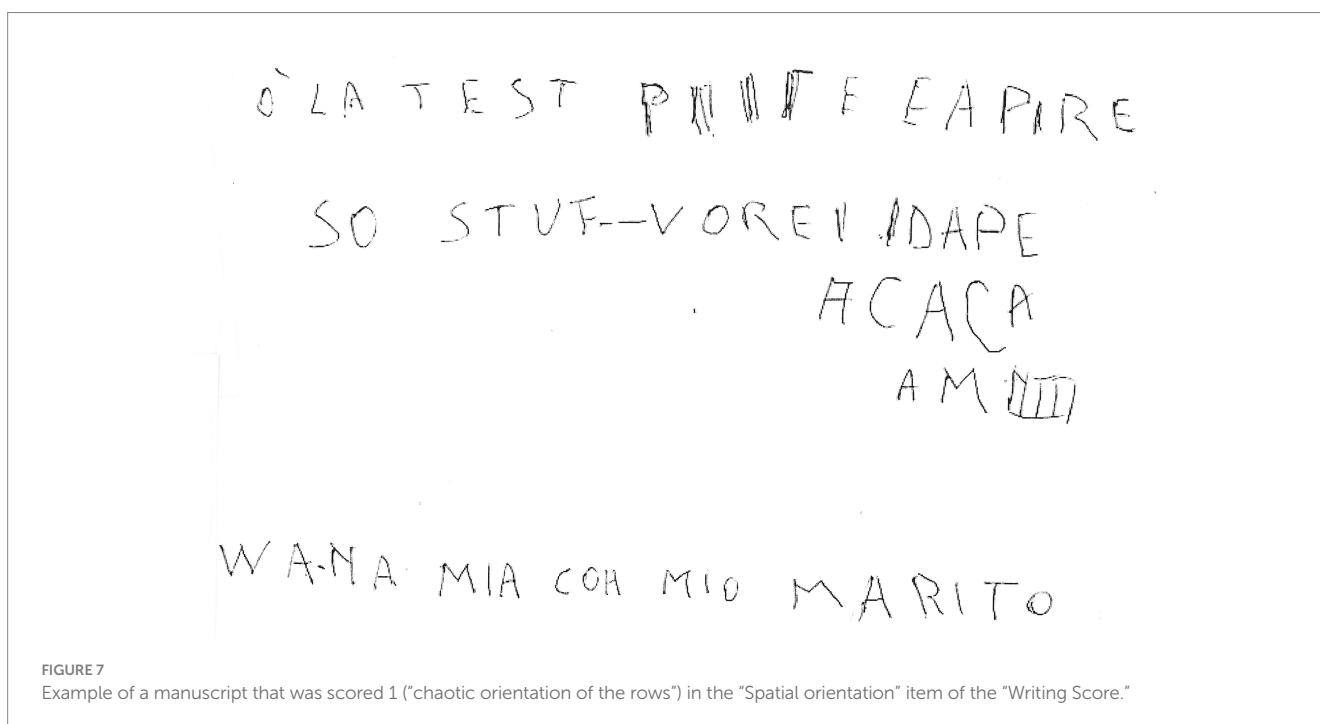 Ò LA TEST E EAPIRE
SO STUF--VOREI DAPE
ACACA
AM
WA-NA MIA COH MIO MARITO
FIGURE 7
Example of a manuscript that was scored 1 (“chaotic orientation of the rows”) in the “Spatial orientation” item of the “Writing Score.”